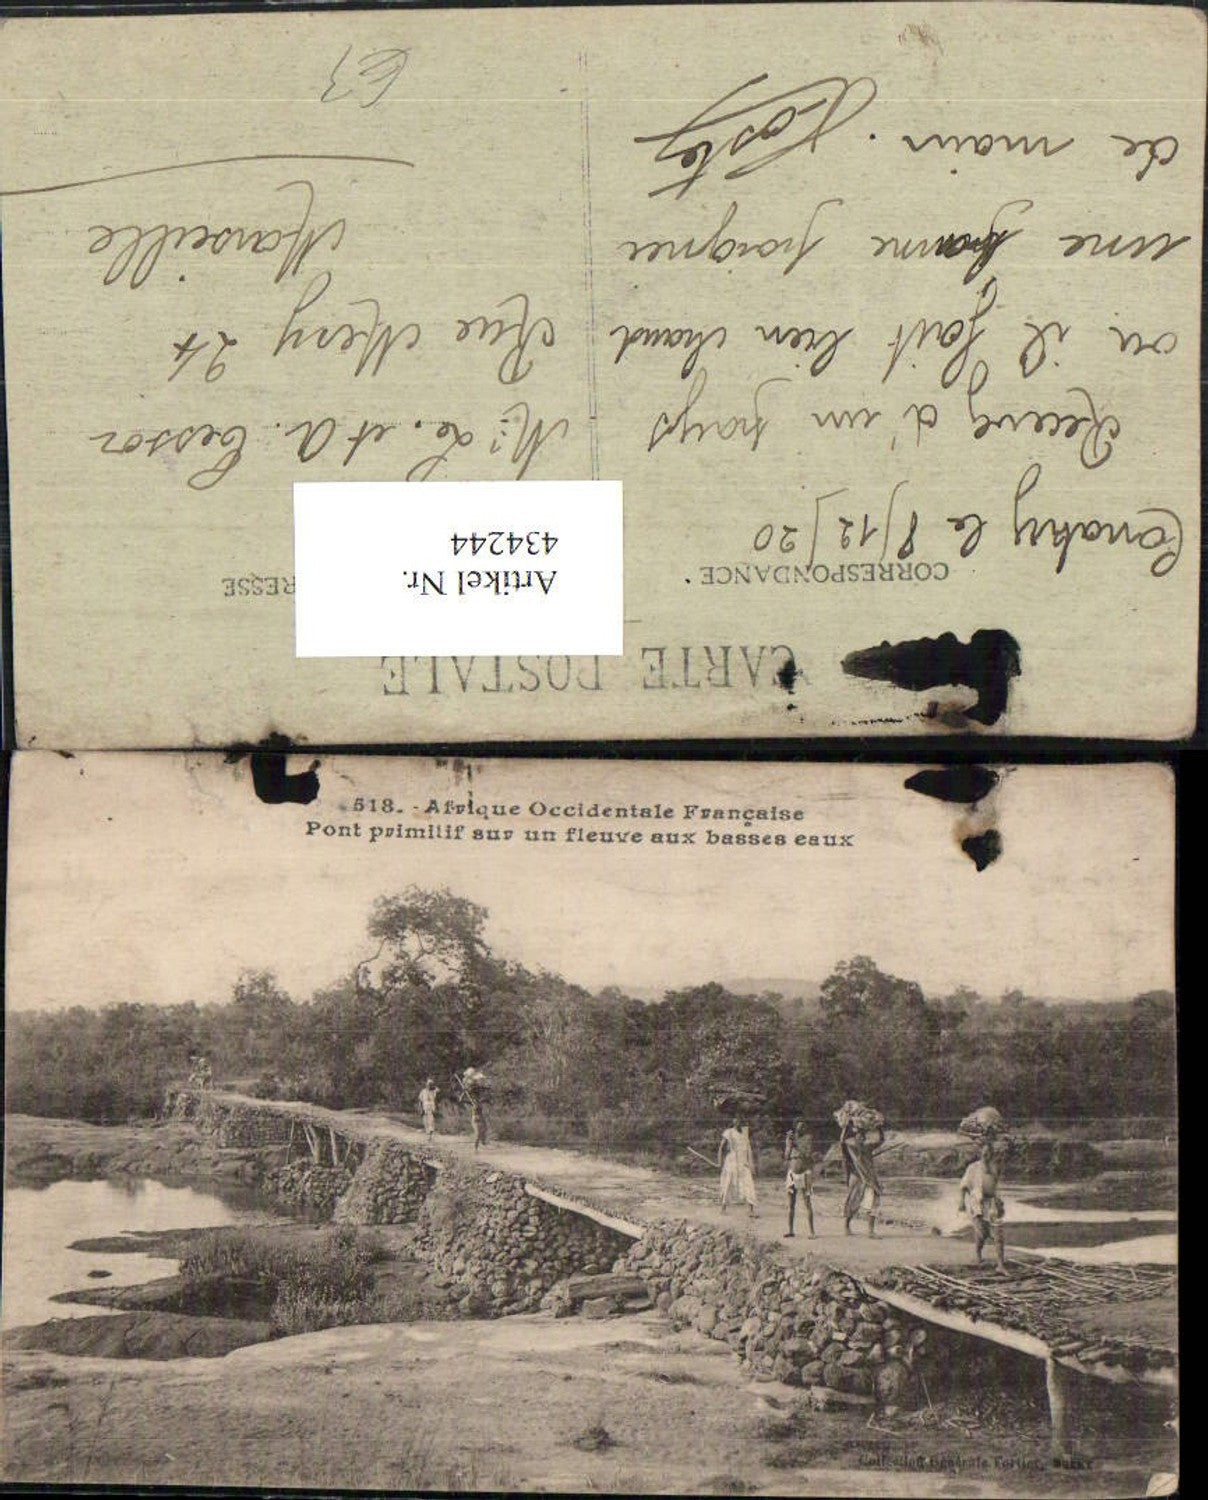 CARTE POSTALE
CORRESPONDANCE
RESSE
Artikel Nr.
434244
Conakry le 8/12/20
Recevez d'un pays
ou il fait bien chaud
une bonne poignee
de main.
M.rs Le. et A. Tessor
Rue Mery 24
Marseille
518. - Afrique Occidentale Française
Pont primitif sur un fleuve aux basses eaux
Collection Générale Fortier, Dakar